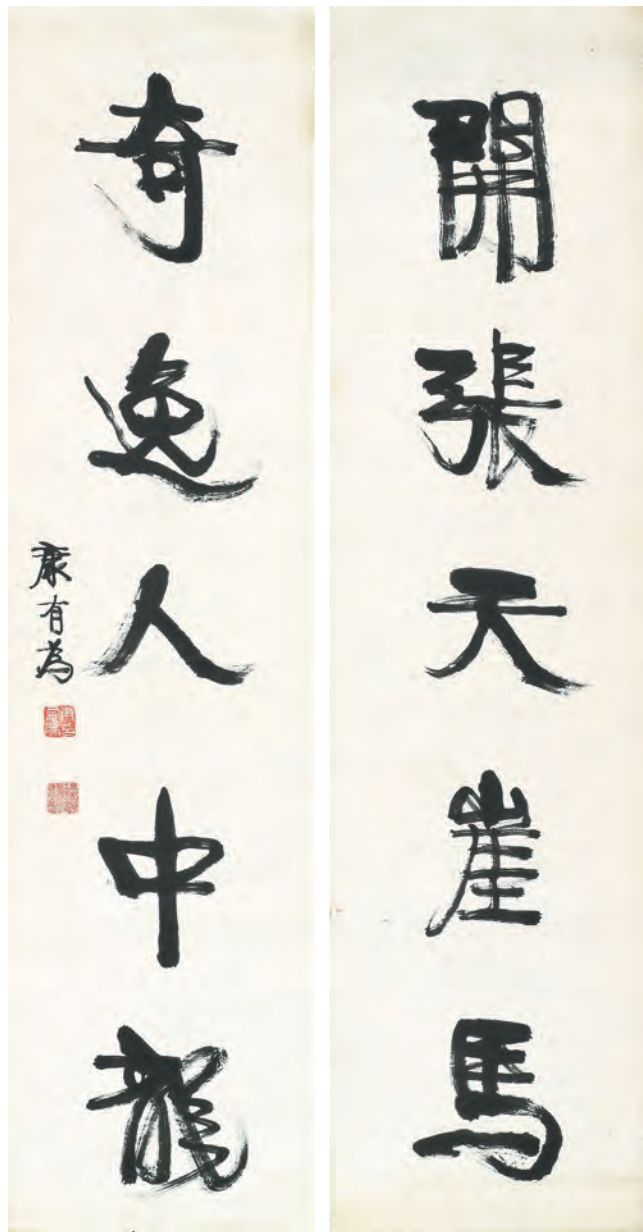 開張天崖馬
奇逸人中龍
康有為